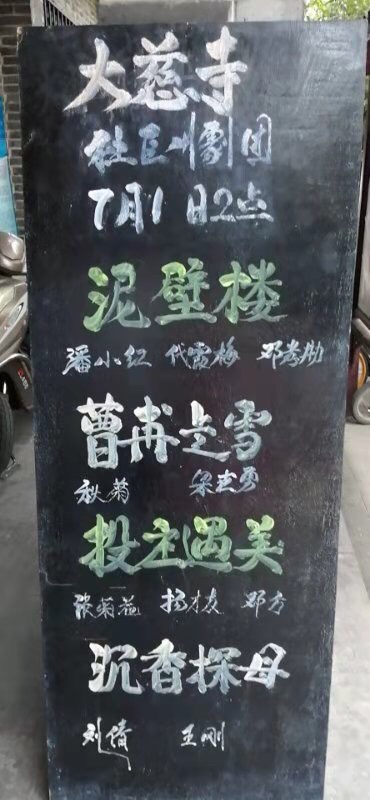 大慈寺
社区川剧团
7月1日2点
泥壁楼
潘小红 代霞梅 邓孝勋
曹甫走雪
秋菊 梁志勇
投庄遇美
张菊花 扬友 邓方
沉香探母
刘倩 王刚